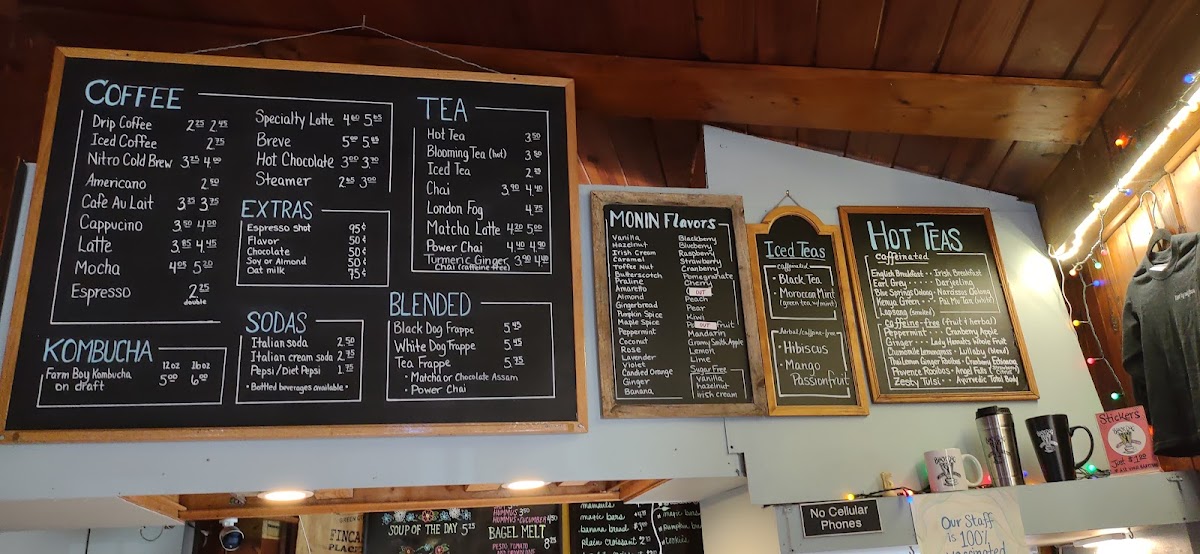 COFFEE
Drip Coffee 2.25 2.45
Iced Coffee 2.75
Nitro Cold Brew 3.75 4.00
Americano 2.50
Cafe Au Lait 3.25 3.75
Cappucino 3.50 4.00
Latte 3.85 4.45
Mocha 4.05 5.20
Espresso 2.25
double
Specialty Latte 4.60 5.65
Breve 5.00 5.65
Hot Chocolate 3.00 3.70
Steamer 2.65 3.00
EXTRAS
Espresso shot 95¢
Flavor 50¢
Chocolate 50¢
Soy or Almond 50¢
Oat milk 75¢
TEA
Hot Tea 3.50
Blooming Tea (hot) 3.50
Iced Tea 2.75
Chai 3.90 4.40
London Fog 4.75
Matcha Latte 4.20 5.00
Power Chai 4.40 4.90
Turmeric Ginger 3.90 4.40
Chai (caffeine free)
KOMBUCHA
12oz 16oz
Farm Boy Kombucha 5.00 6.00
on draft
SODAS
Italian soda 2.50
Italian cream soda 2.75
Pepsi / Diet Pepsi 1.75
• Bottled beverages available •
BLENDED
Black Dog Frappe 5.45
White Dog Frappe 5.45
Tea Frappe 5.75
• Matcha or Chocolate Assam
• Power Chai
MONIN Flavors
Vanilla
Hazelnut
Irish Cream
Caramel
Toffee Nut
Butterscotch
Praline
Amaretto
Almond
Gingerbread
Pumpkin Spice
Maple Spice
Peppermint
Coconut
Rose
Lavender
Violet
Candied Orange
Ginger
Banana
Blackberry
Blueberry
Raspberry
Strawberry
Cranberry
Pomegranate
Cherry
OUT
Peach
Pear
Kiwi
OUT fruit
Mandarin
Granny Smith Apple
Lemon
Lime
Sugar Free
Vanilla
hazelnut
irish cream
Iced Teas
caffeinated
• Black Tea
• Moroccan Mint
(green tea w/mint)
Herbal/caffeine-free
• Hibiscus
• Mango
Passionfruit
HOT TEAS
caffeinated
English Breakfast • • Irish Breakfast
Earl Grey • • • • Darjeeling
Blue Springs Oolong • Narcissus Oolong
Kenya Green • • Pai Mu Tan (white)
Lapsang (smoked)
caffeine-free (fruit & herbal)
Peppermint • • • Cranberry Apple
Ginger • • • Lady Hannah's Whole Fruit
Chamomile Lemongrass • Lullaby (blend)
Thai Lemon Ginger Rooibos • Cranberry Echinacea
Provence Rooibos • Angel Falls
Zesty Tulsi • • Ayurvedic Total Body
Stickers
Just $1.00
No Cellular
Phones
Our Staff
is 100%
Vaccinated
SOUP OF THE DAY 5.25
HUMMUS
HUMMUS + CUCUMBER
BAGEL MELT
8.25
magic bars
banana bread
plain croissant